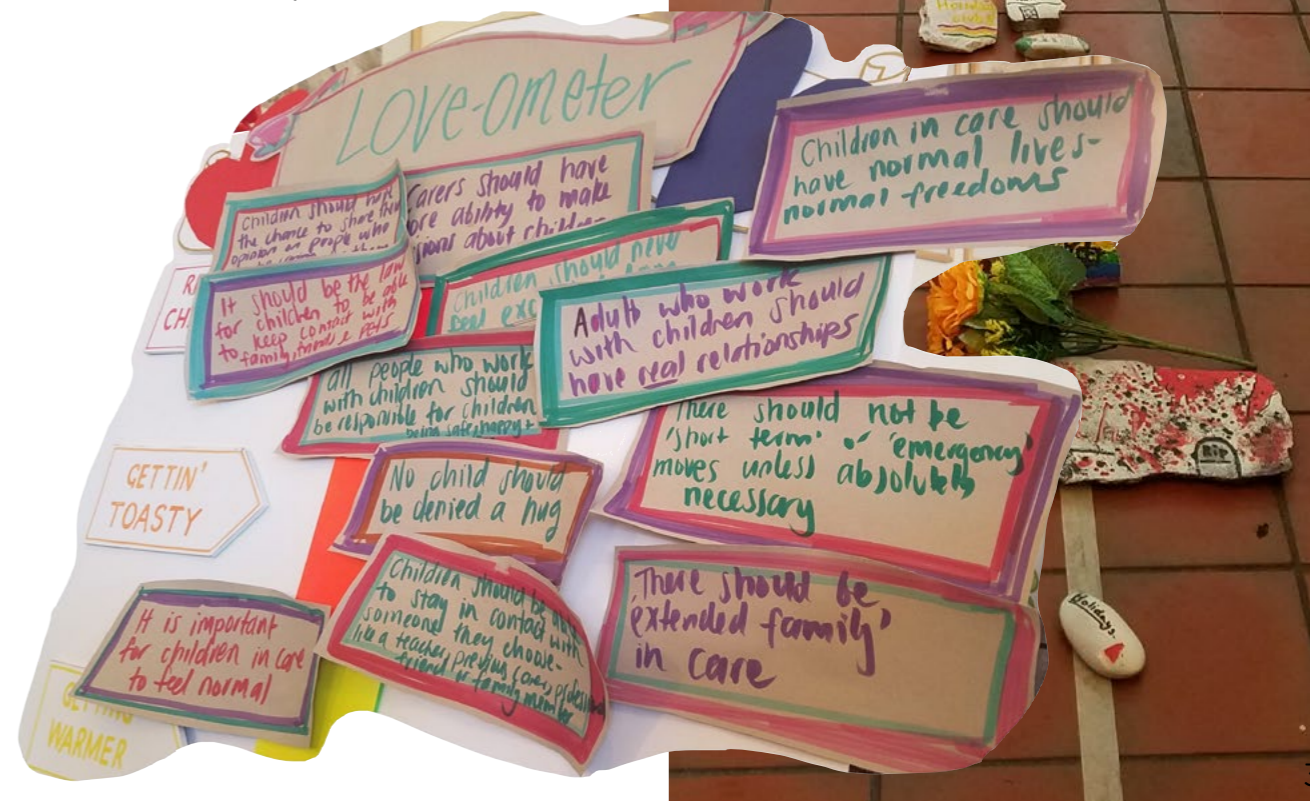 LOVE-ometer
Children should have
the chance to share their
opinion on people who
Carers should have
ability to make
about children
Children in care should
have normal lives-
normal freedoms
Children should never
It should be the law
for children to be able
to keep contact with
family, friends & pets
Adults who work
with children should
have real relationships
all people who work
with children should
be responsible for children
being safe, happy +
There should not be
'short term' or 'emergency'
moves unless absolutely
necessary
No child should
be denied a hug
GETTIN'
TOASTY
Children should be
to stay in contact with
someone they choose-
like a teacher, previous carer, professional
friend or family member
There should be
extended family'
in care
It is important
for children in care
to feel normal
GETTING
WARMER
RIP
Holidays.